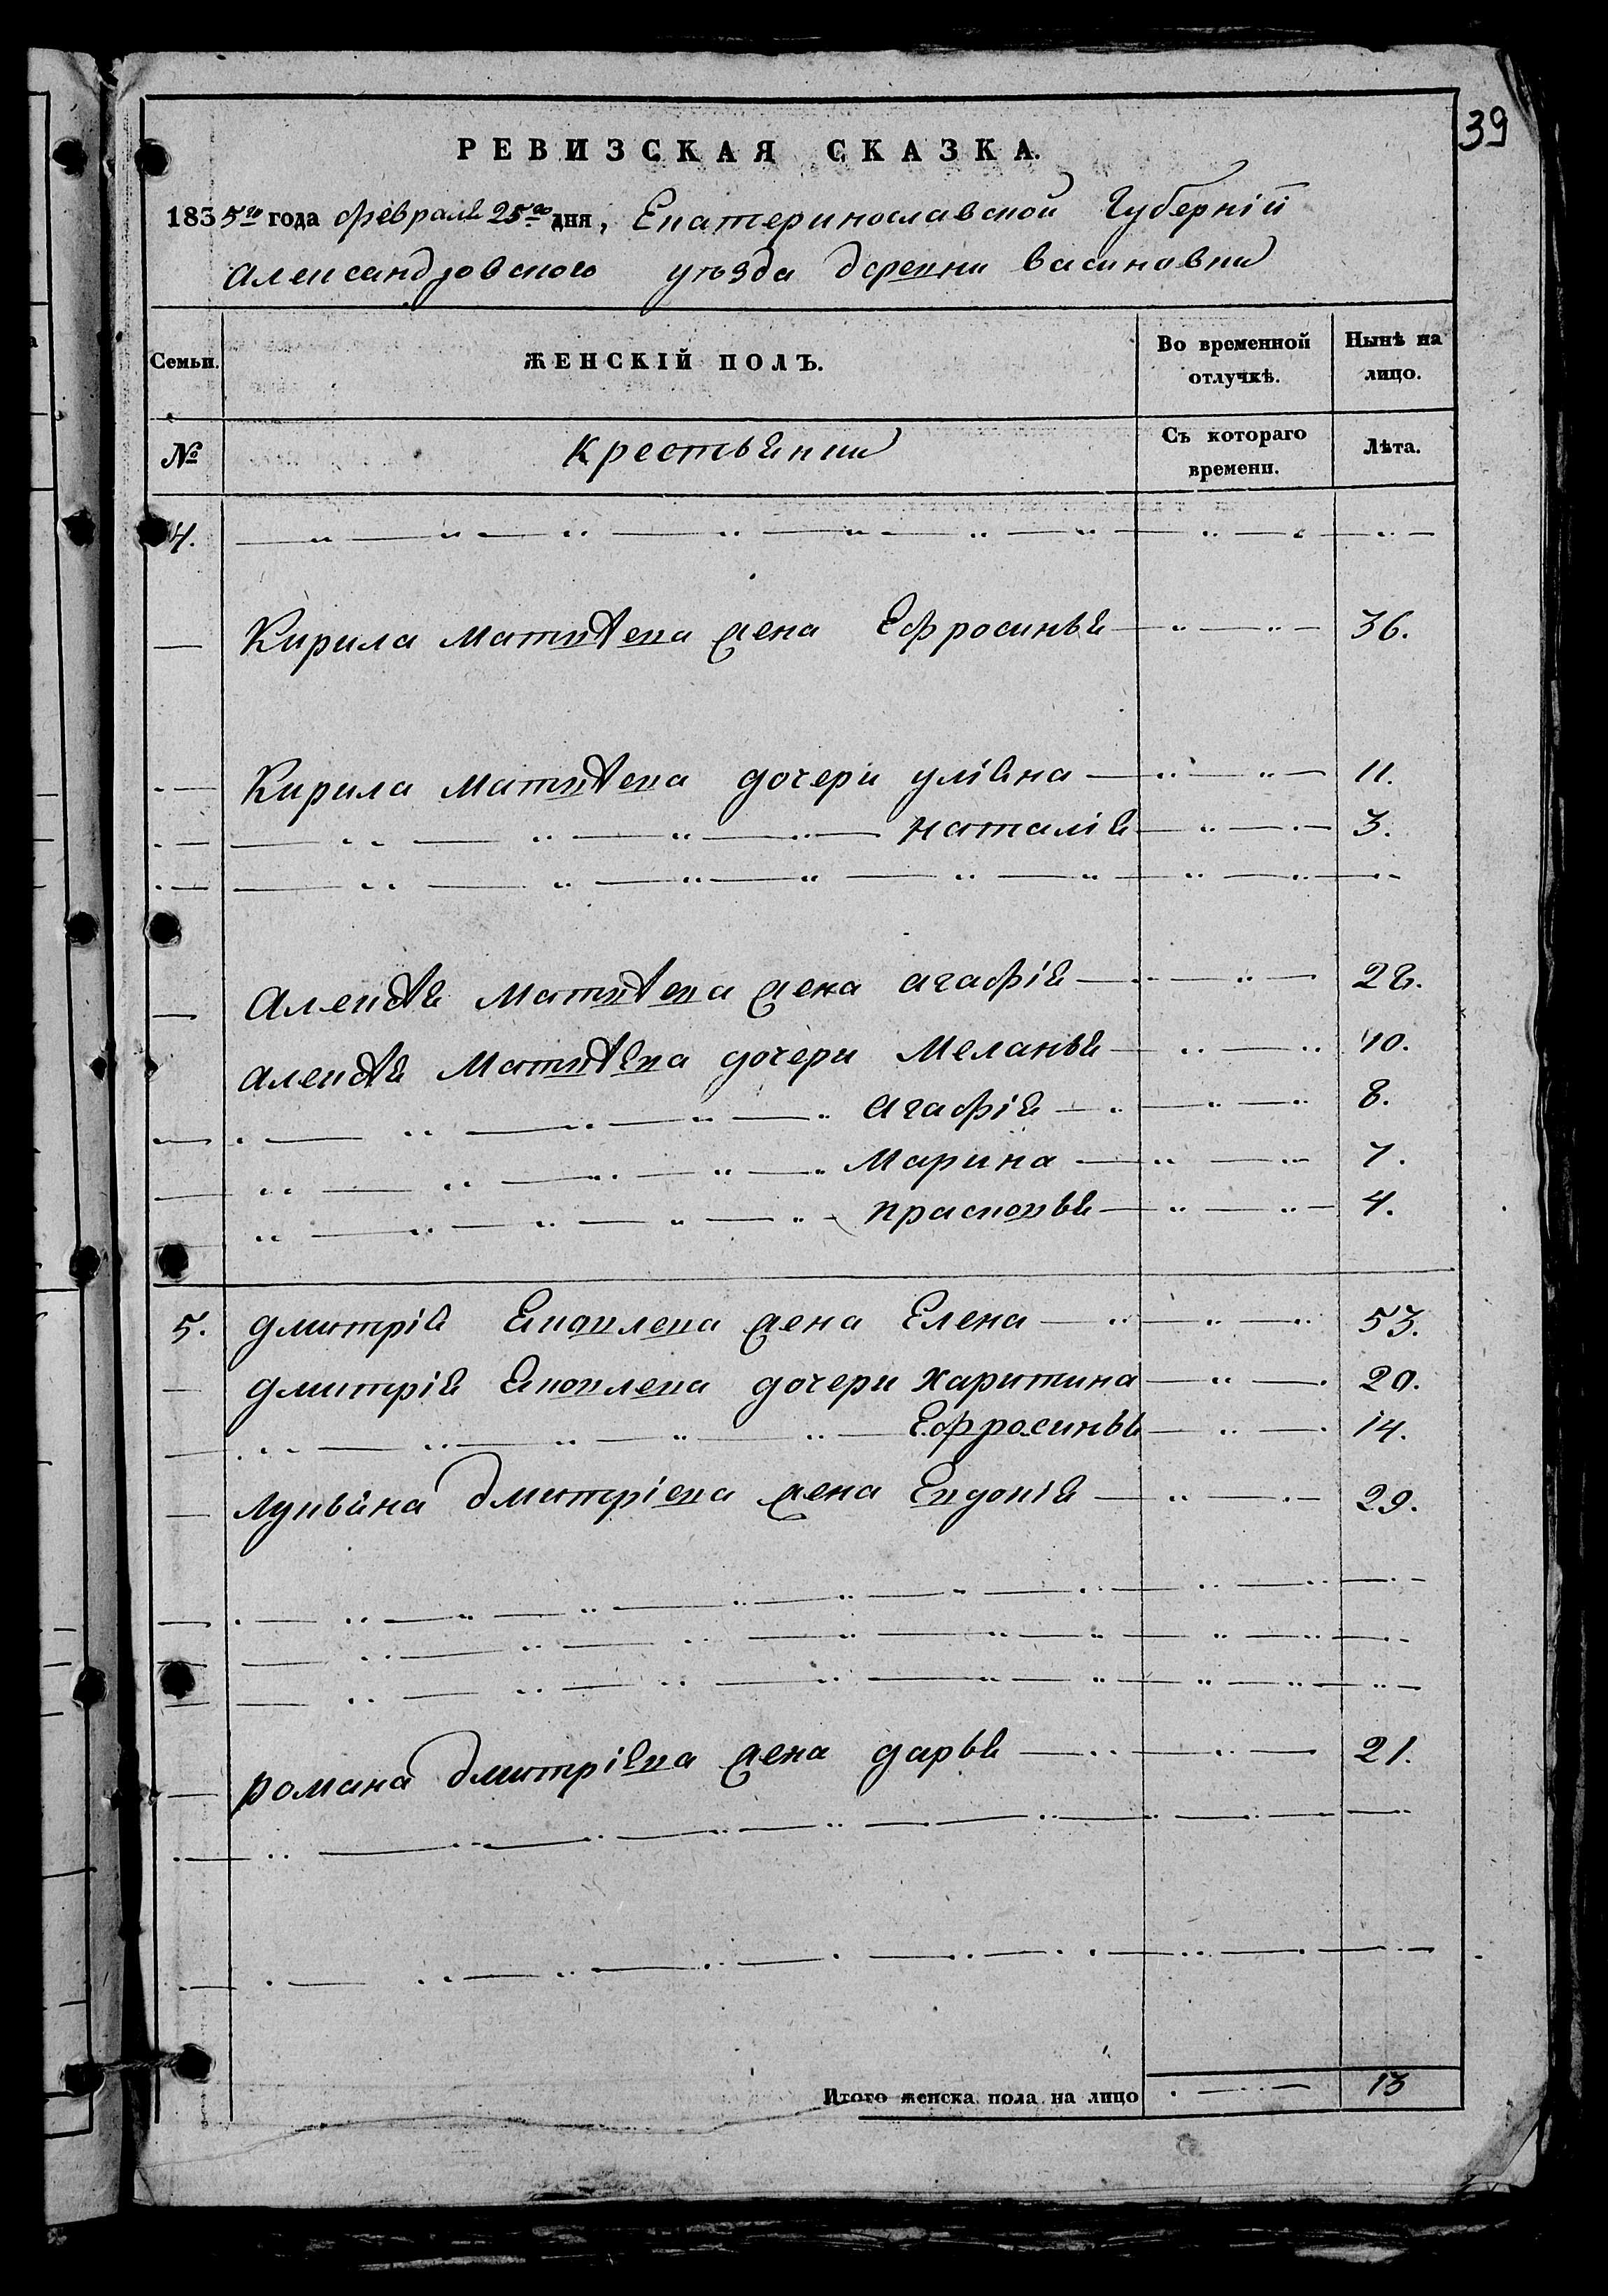 39
РЕВИЗСКАЯ СКАЗКА.
1835го года февраля 25го дня, Екатеринославской Губерній
Александровского уѣзда деревни васиновки
Семьи. ЖЕНСКІЙ ПОЛЪ. Во временной отлучкѣ. Нынѣ на лицо.
№ Крестьянки Съ котораго времени. Лѣта.
4.
Кирила Матвѣева жена Ефросинья 36.
Кирила Матвѣева дочери уліяна 11.
наталія 3.
Алексѣя Матвѣева жена агафія 28.
Алексѣя Матвѣева дочери Меланья 10.
агафія 8.
Марина 7.
прасковья 4.
5. дмитрія Яковлева жена Елена 53.
дмитрія Яковлева дочери харитина 20.
Ефросинья 14.
Лукьяна дмитріева жена Евдокія 29.
романа дмитріева жена дарья 21.
Итого женска пола на лицо 13